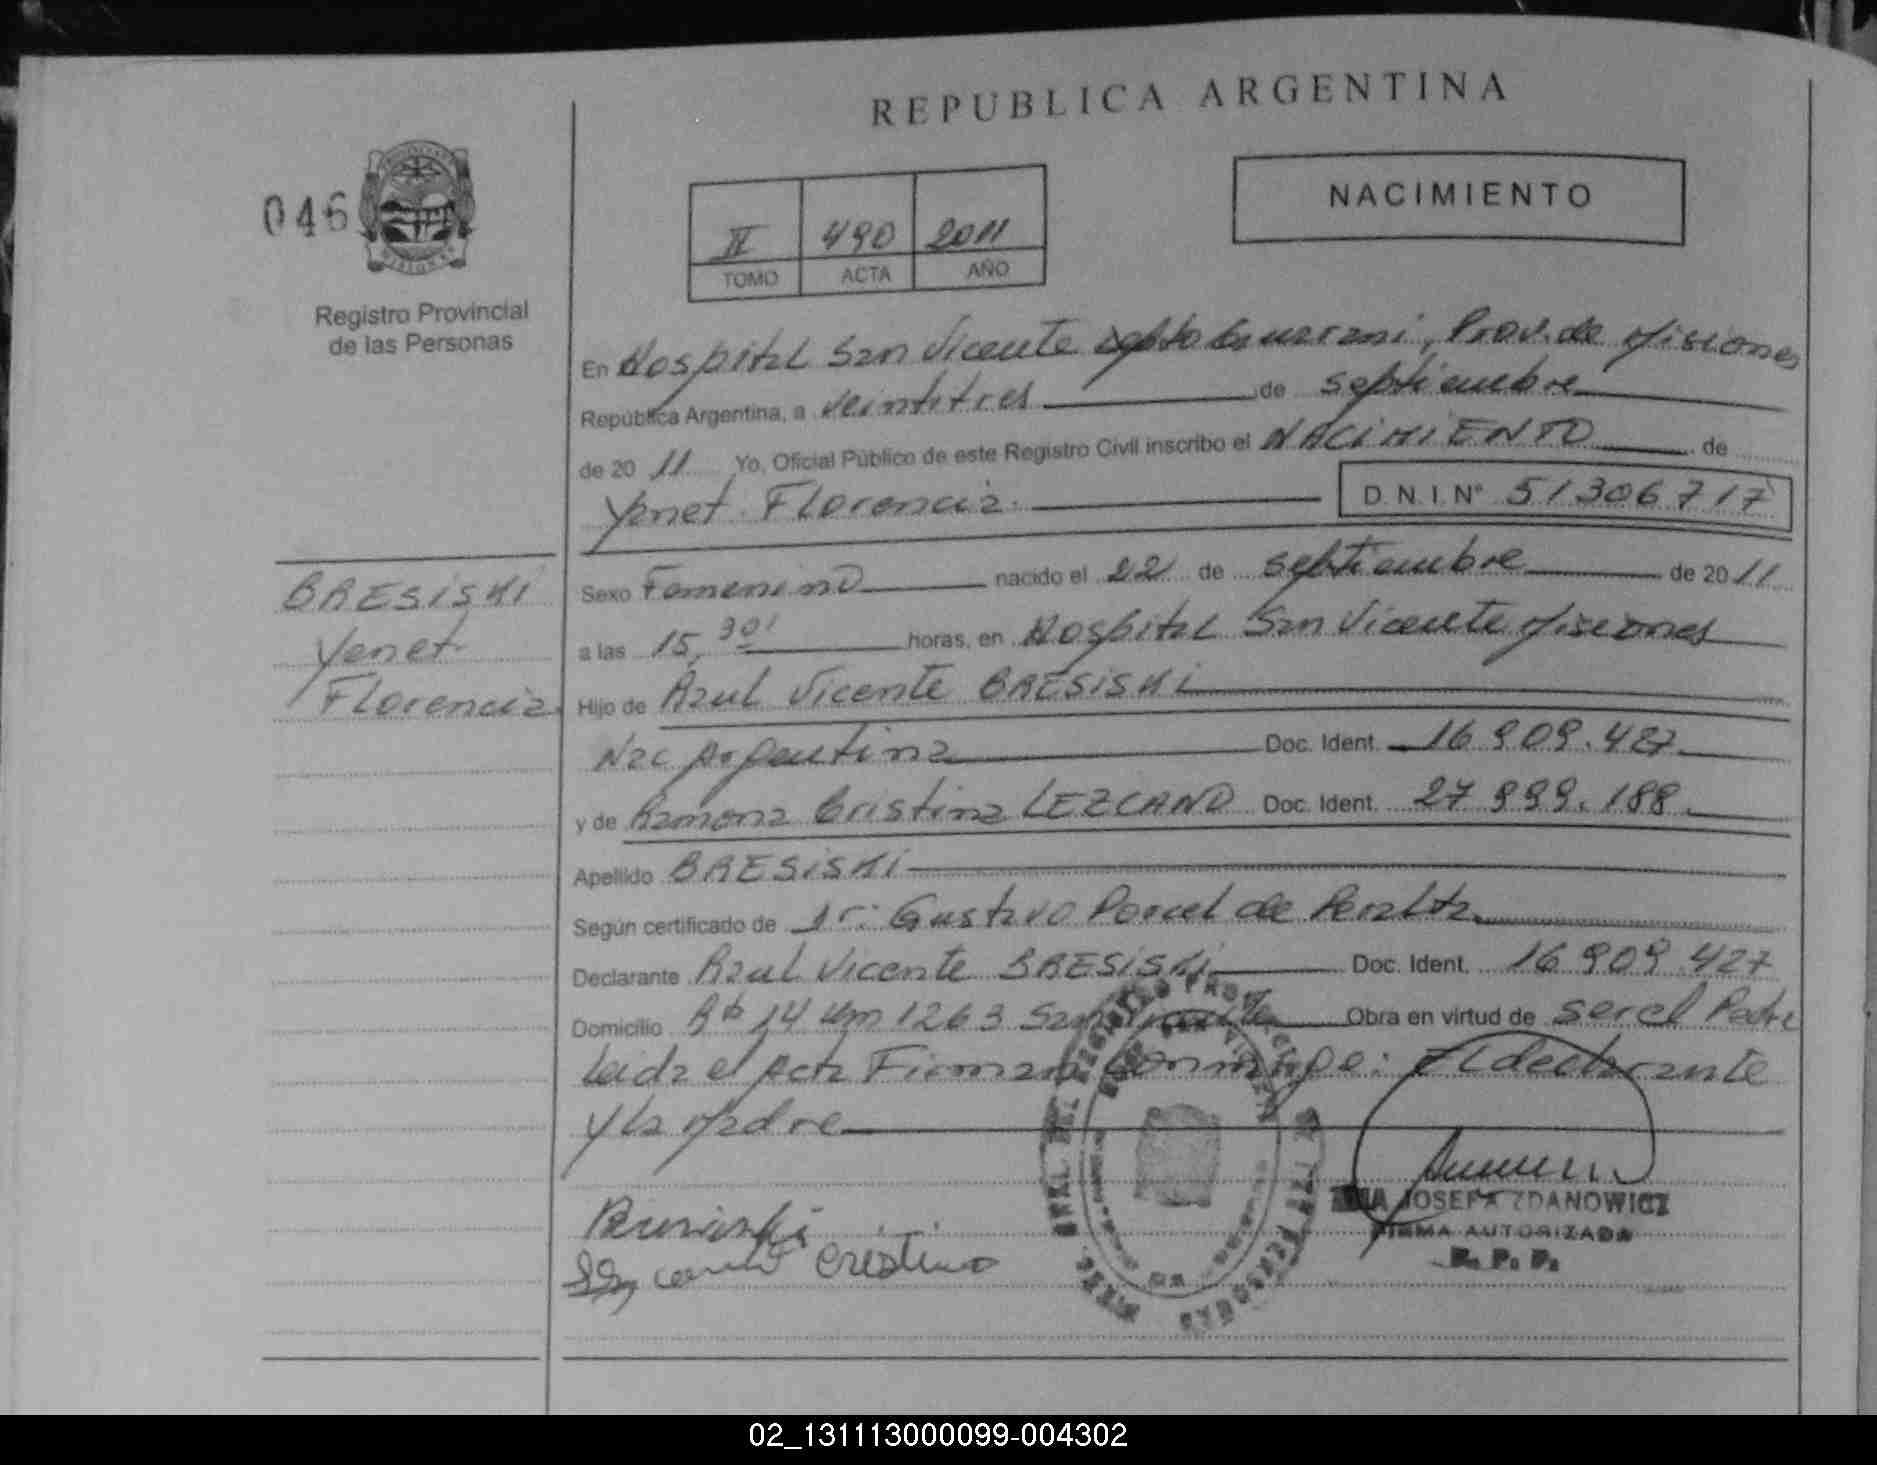 REPUBLICA ARGENTINA
NACIMIENTO
046
II 490 2011
TOMO ACTA AÑO
Registro Provincial
de las Personas
En Hospital San Vicente Dpto Guarani, Prov. de Misiones
República Argentina, a veintitres de septiembre
de 20 11 Yo, Oficial Público de este Registro Civil inscribo el NACIMIENTO de
Yanet Florencia D.N.I. N° 51306717
BRESISKI
Yanet
Florencia
Sexo Femenino nacido el 22 de septiembre de 20 11
a las 15,30' horas, en Hospital San Vicente Misiones
Hijo de Azul Vicente BRESISKI
Nac Argentina Doc. Ident. 16 909.427
y de Ramona Cristina LEZCANO Doc. Ident. 27 999.188
Apellido BRESISKI
Según certificado de Dr: Gustavo Porcel de Peralta
Declarante Azul Vicente BRESISKI Doc. Ident. 16 909 427
Domicilio Rta 14 Km 1263 San Vicente Obra en virtud de ser el Padre
Leida el Acta Firman conmigo: El declarante
y la Madre
Bresiski
Cristina
JOSEFA ZDANOWICZ
FIRMA AUTORIZADA
R. P. P.
02_131113000099-004302